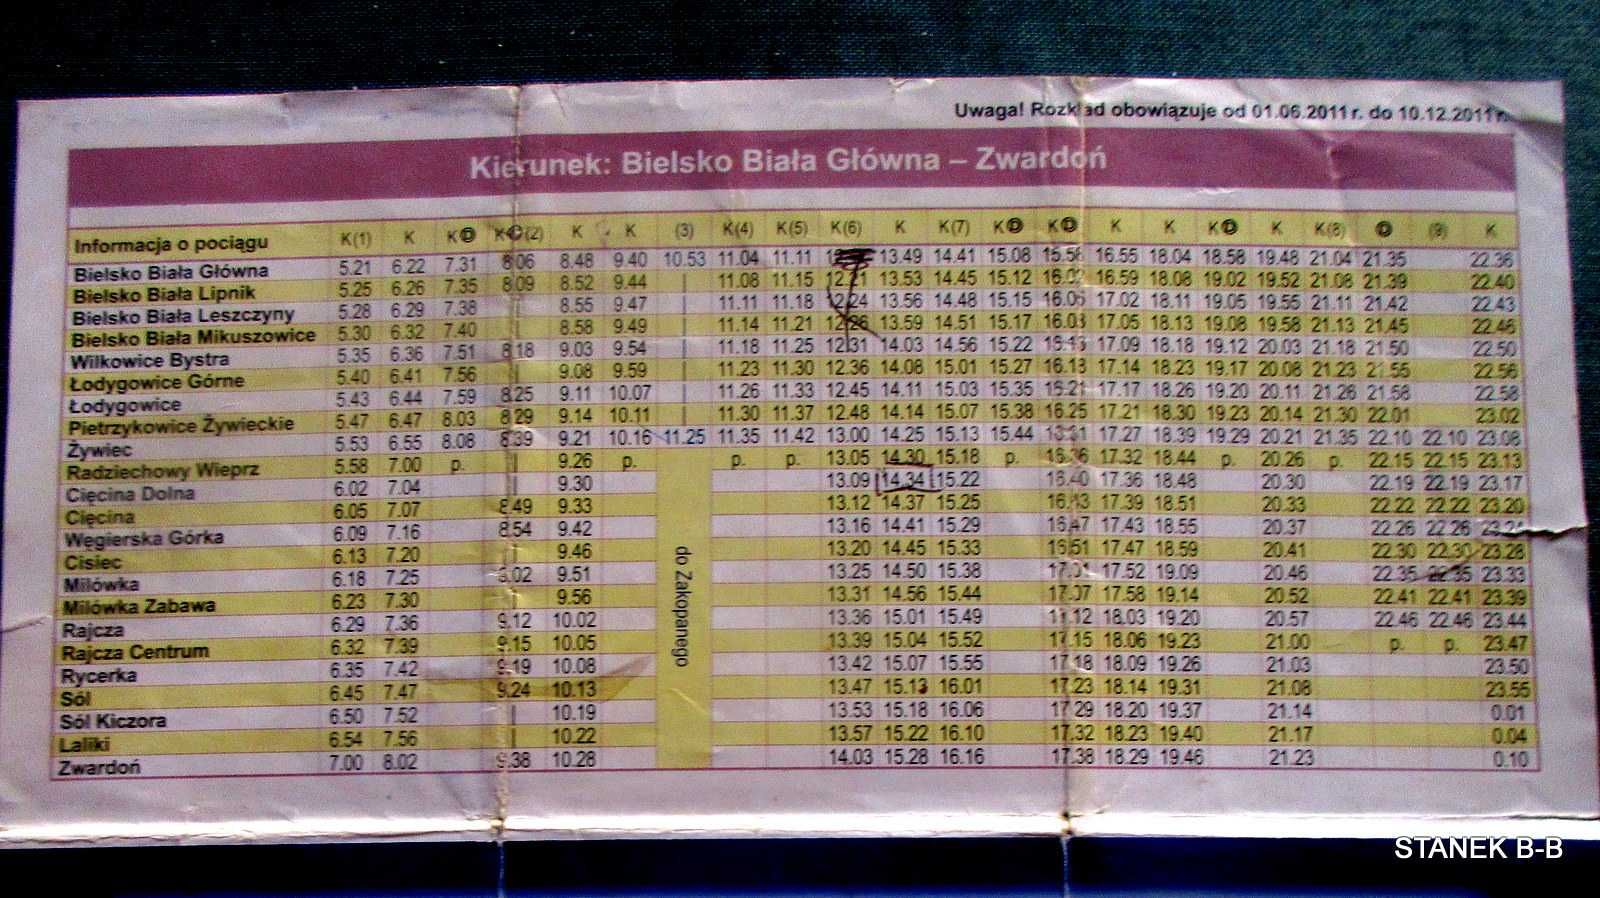 Uwaga! Rozkład obowiązuje od 01.06.2011 r. do 10.12.2011 r.
Kierunek: Bielsko Biała Główna – Zwardoń
Informacja o pociągu K(1) K K Ⓓ K Ⓒ (2) K K (3) K(4) K(5) K(6) K K(7) K Ⓓ K Ⓓ K K K Ⓓ K K(8) Ⓓ (9) K
Bielsko Biała Główna 5.21 6.22 7.31 8.06 8.48 9.40 10.53 11.04 11.11 13.49 14.41 15.08 15.58 16.55 18.04 18.58 19.48 21.04 21.35 22.36
Bielsko Biała Lipnik 5.25 6.26 7.35 8.09 8.52 9.44 | 11.08 11.15 12.21 13.53 14.45 15.12 16.02 16.59 18.08 19.02 19.52 21.08 21.39 22.40
Bielsko Biała Leszczyny 5.28 6.29 7.38 | 8.55 9.47 | 11.11 11.18 12.24 13.56 14.48 15.15 16.06 17.02 18.11 19.05 19.55 21.11 21.42 22.43
Bielsko Biała Mikuszowice 5.30 6.32 7.40 | 8.58 9.49 | 11.14 11.21 12.26 13.59 14.51 15.17 16.08 17.05 18.13 19.08 19.58 21.13 21.45 22.46
Wilkowice Bystra 5.35 6.36 7.51 8.18 9.03 9.54 | 11.18 11.25 12.31 14.03 14.56 15.22 16.13 17.09 18.18 19.12 20.03 21.18 21.50 22.50
Łodygowice Górne 5.40 6.41 7.56 | 9.08 9.59 | 11.23 11.30 12.36 14.08 15.01 15.27 16.18 17.14 18.23 19.17 20.08 21.23 21.55 22.56
Łodygowice 5.43 6.44 7.59 8.25 9.11 10.07 | 11.26 11.33 12.45 14.11 15.03 15.35 16.21 17.17 18.26 19.20 20.11 21.26 21.58 22.58
Pietrzykowice Żywieckie 5.47 6.47 8.03 8.29 9.14 10.11 | 11.30 11.37 12.48 14.14 15.07 15.38 16.25 17.21 18.30 19.23 20.14 21.30 22.01 23.02
Żywiec 5.53 6.55 8.08 8.39 9.21 10.16 11.25 11.35 11.42 13.00 14.25 15.13 15.44 16.31 17.27 18.39 19.29 20.21 21.35 22.10 22.10 23.08
Radziechowy Wieprz 5.58 7.00 p. | 9.26 p. p. p. 13.05 14.30 15.18 p. 16.36 17.32 18.44 p. 20.26 p. 22.15 22.15 23.13
Cięcina Dolna 6.02 7.04 | 9.30 13.09 14.34 15.22 16.40 17.36 18.48 20.30 22.19 22.19 23.17
Cięcina 6.05 7.07 8.49 9.33 13.12 14.37 15.25 16.43 17.39 18.51 20.33 22.22 22.22 23.20
Węgierska Górka 6.09 7.16 8.54 9.42 13.16 14.41 15.29 16.47 17.43 18.55 20.37 22.26 22.26 23.24
Cisiec 6.13 7.20 | 9.46 13.20 14.45 15.33 16.51 17.47 18.59 20.41 22.30 22.30 23.28
Milówka 6.18 7.25 9.02 9.51 13.25 14.50 15.38 17.01 17.52 19.09 20.46 22.35 22.35 23.33
Milówka Zabawa 6.23 7.30 | 9.56 13.31 14.56 15.44 17.07 17.58 19.14 20.52 22.41 22.41 23.39
Rajcza 6.29 7.36 9.12 10.02 13.36 15.01 15.49 17.12 18.03 19.20 20.57 22.46 22.46 23.44
Rajcza Centrum 6.32 7.39 9.15 10.05 13.39 15.04 15.52 17.15 18.06 19.23 21.00 p. p. 23.47
Rycerka 6.35 7.42 9.19 10.08 13.42 15.07 15.55 17.18 18.09 19.26 21.03 23.50
Sól 6.45 7.47 9.24 10.13 13.47 15.13 16.01 17.23 18.14 19.31 21.08 23.55
Sól Kiczora 6.50 7.52 | 10.19 13.53 15.18 16.06 17.29 18.20 19.37 21.14 0.01
Laliki 6.54 7.56 | 10.22 13.57 15.22 16.10 17.32 18.23 19.40 21.17 0.04
Zwardoń 7.00 8.02 9.38 10.28 14.03 15.28 16.16 17.38 18.29 19.46 21.23 0.10
do Zakopanego
STANEK B-B